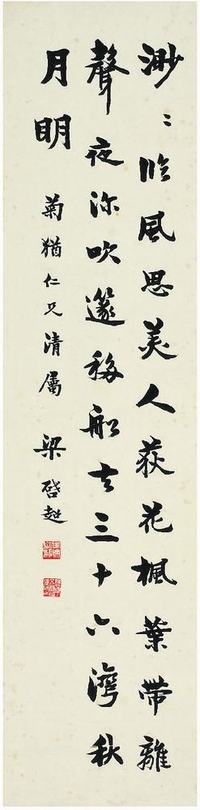 渺〻临風思美人荻花楓葉帶離
聲夜深吹邃移船去三十六灣秋
月明
菊猶仁兄清屬 梁啓超